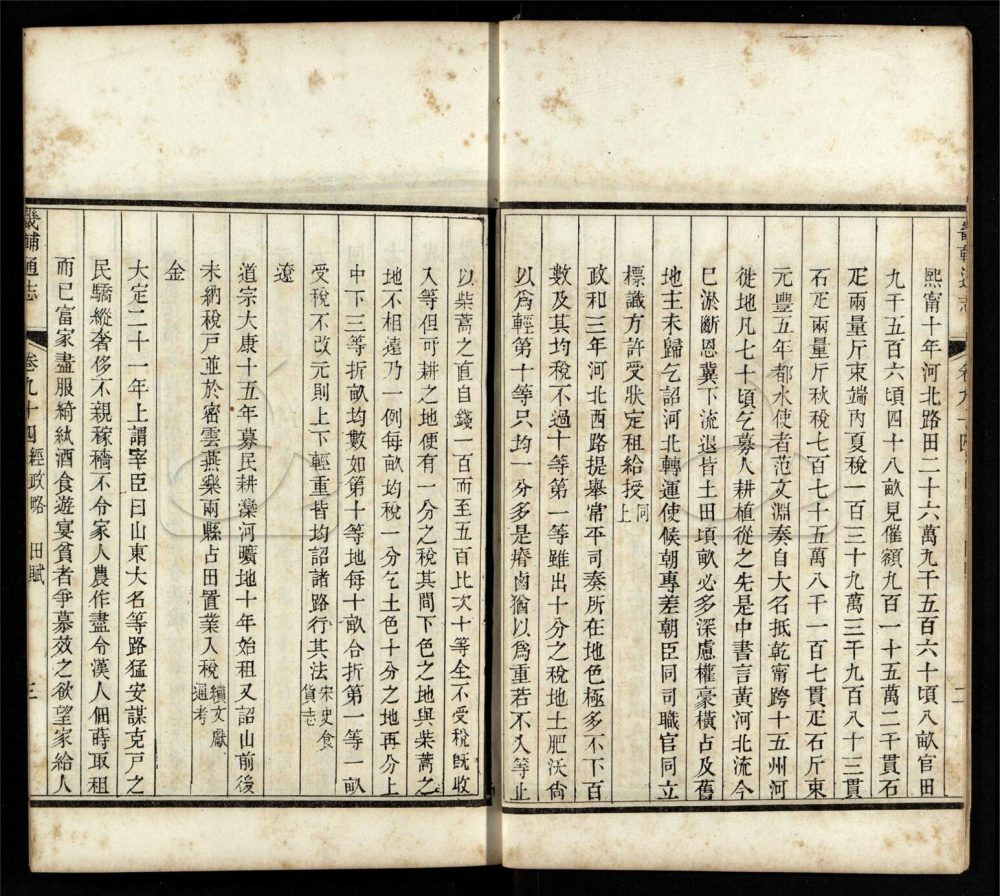 畿輔通志
卷九十四
二
熙甯十年河北路田二十六萬九千五百六十頃八畝官田
九千五百六頃四十八畝見催額九百一十五萬二千貫石
疋兩量斤束端內夏稅一百三十九萬三千九百八十三貫
石疋兩量斤秋稅七百七十五萬八千一百七貫疋石斤束
元豐五年都水使者范文淵奏自大名抵乾甯跨十五州河
徙地凡七十頃乞募人耕植從之先是中書言黃河北流今
已淤斷恩冀下流退皆土田頃畝必多深慮權豪橫占及舊
地主未歸乞詔河北轉運使候朝專差朝臣同司職官同立
標識方許受狀定租給授同上
政和三年河北西路提舉常平司奏所在地色極多不下百
數及其均稅不過十等第一等雖出十分之稅地土肥沃尙
以爲輕第十等只均一分多是瘠鹵猶以爲重若不入等止
以柴蒿之直自錢一百而至五百比次十等全不受稅旣收
入等但可耕之地便有一分之稅其間下色之地與柴蒿之
地不相遠乃一例每畝均稅一分乞土色十分之地再分上
中下三等折畝均數如第十等地每十畝合折第一等一畝
受稅不改元則上下輕重皆均詔諸路行其法宋史食貨志
遼
道宗大康十五年募民耕灤河曠地十年始租又詔山前後
未納稅戸並於密雲燕樂兩縣占田置業入稅續文獻通考
金
大定二十一年上謂宰臣曰山東大名等路猛安謀克戸之
民驕縱奢侈不親稼穡不令家人農作盡令漢人佃蒔取租
而已富家盡服綺紈酒食遊宴貧者爭慕效之欲望家給人
畿輔通志
卷九十四 經政略 田賦
三